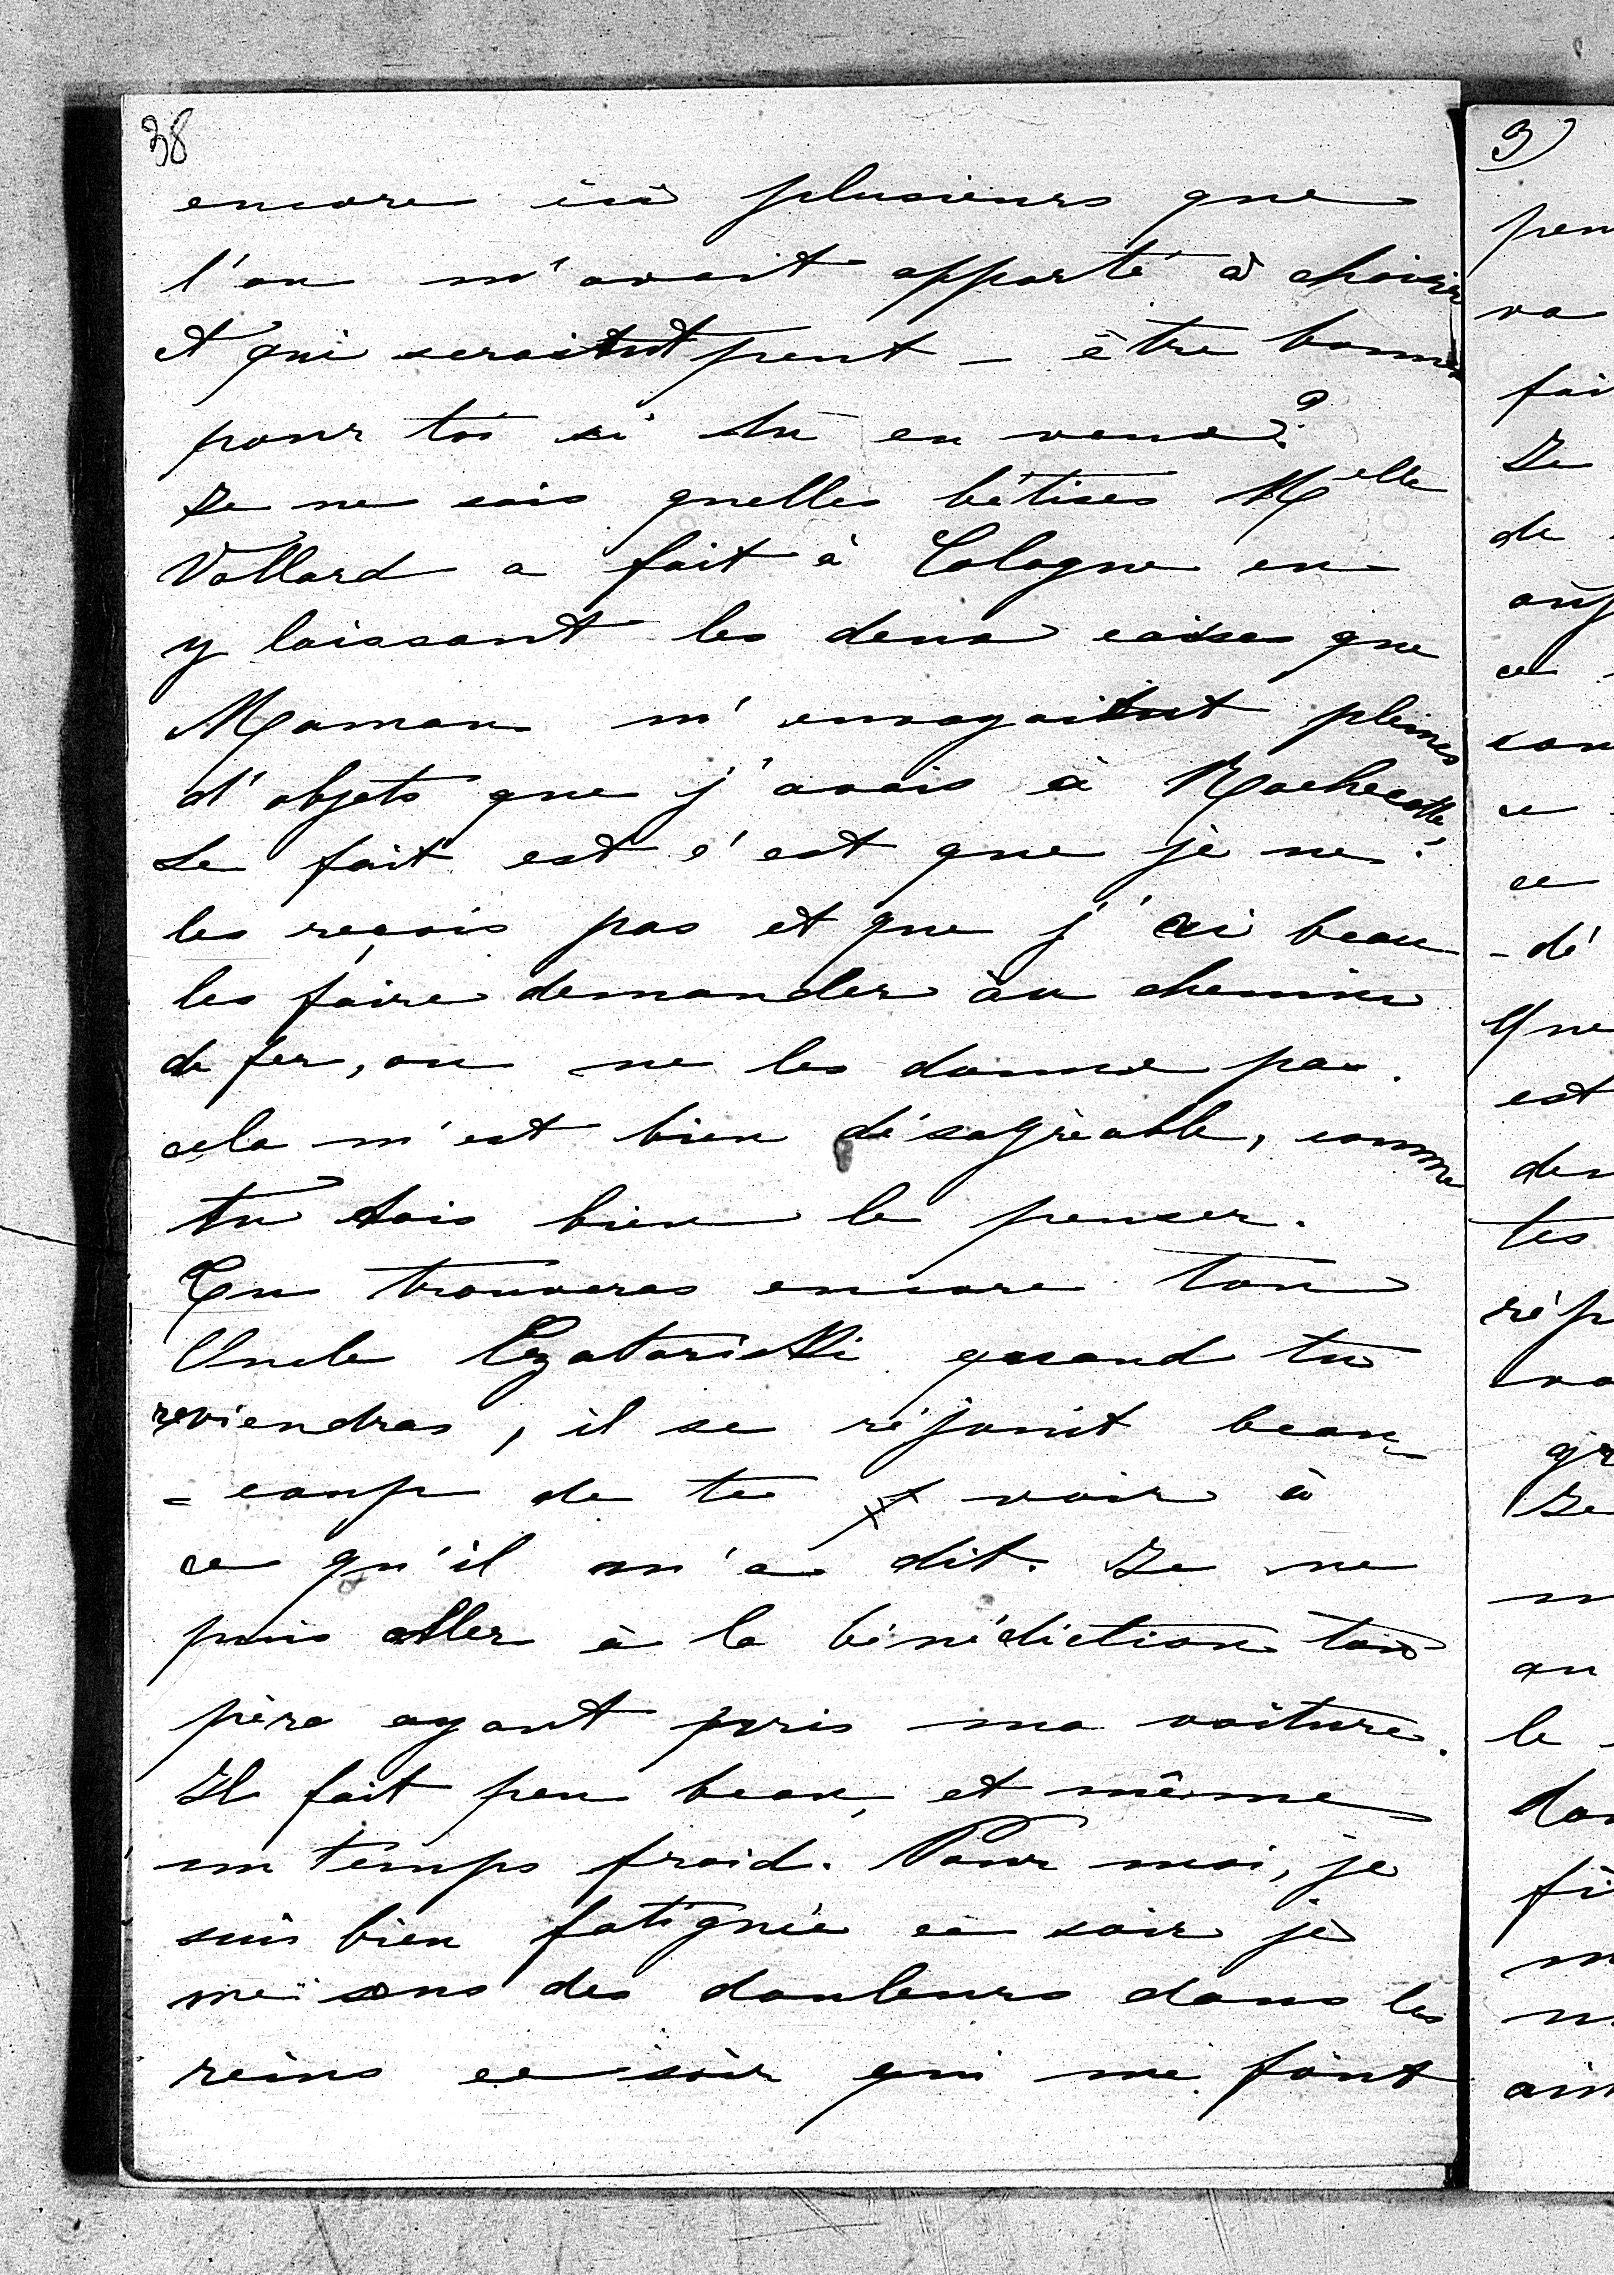 38
encore ici plusieurs que
l'on m'avait apporté à choisir
et qui seraient peut-être bonnes
pour toi si tu en veux?
Je ne sais quelles bêtises Melle
Vollard a fait à Cologne en
y laissant les deux caisses que
Maman m'envoyaient pleines
d'objets que j'avais à Rochecotte,
Le fait est c'est que je ne
les reçois pas et que j'ai beau
les faire demander au chemin
de fer, on ne les donne pas.
cela m'est bien désagréable, comme
tu dois bien le penser.
Tu trouveras encore ton
Oncle quand tu
reviendras, il se réjouit beau
= coup de te voir à
ce qu'il m'a dit. Je ne
puis aller à la bénédiction ton
père ayant pris ma voiture.
Il fait peu beau, et même
un temps froid. Pour moi, je
suis bien fatiguée ce soir je
me sens des douleurs dans les
reins ce soir qui me font